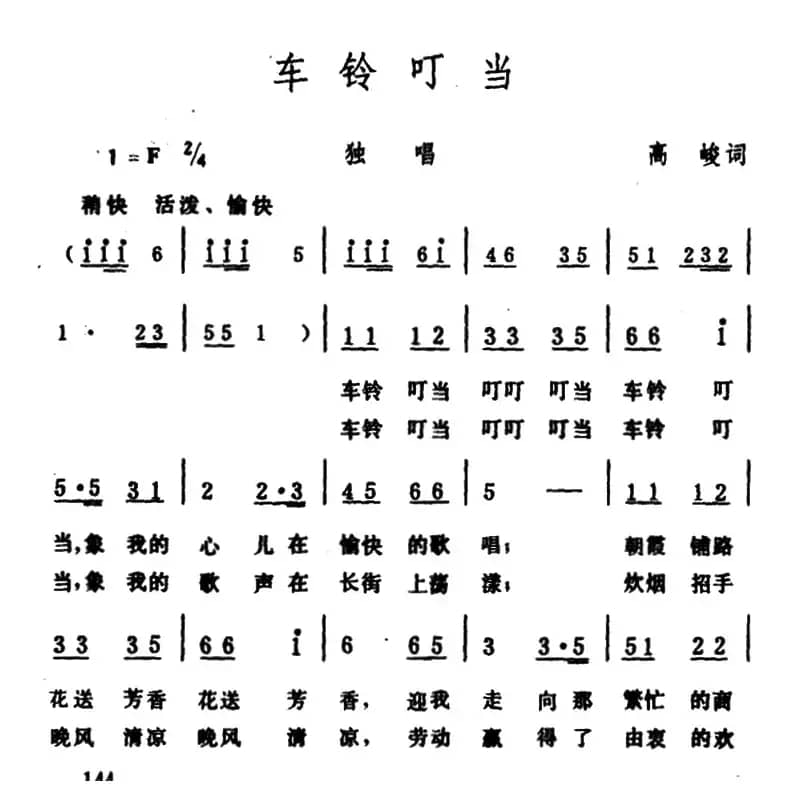 车铃叮当
1=F 2/4 独唱 高峻词
稍快 活泼、愉快
(i i i 6 | i i i 5 | i i i 6 i | 4 6 3 5 | 5 1 2 3 2 |
1 · 2 3 | 5 5 1 ) | 1 1 1 2 | 3 3 3 5 | 6 6 i |
车铃 叮当 叮叮 叮当 车铃 叮
车铃 叮当 叮叮 叮当 车铃 叮
5 · 5 3 1 | 2 2 · 3 | 4 5 6 6 | 5 — | 1 1 1 2 |
当,象 我的 心 儿在 愉快 的歌 唱; 朝霞 铺路
当,象 我的 歌 声在 长街 上荡 漾; 炊烟 招手
3 3 3 5 | 6 6 i | 6 6 5 | 3 3 · 5 | 5 1 2 2 |
花送 芳香 花送 芳 香, 迎我 走 向那 繁忙 的商
晚风 清凉 晚风 清 凉, 劳动 赢 得了 由衷 的欢
144